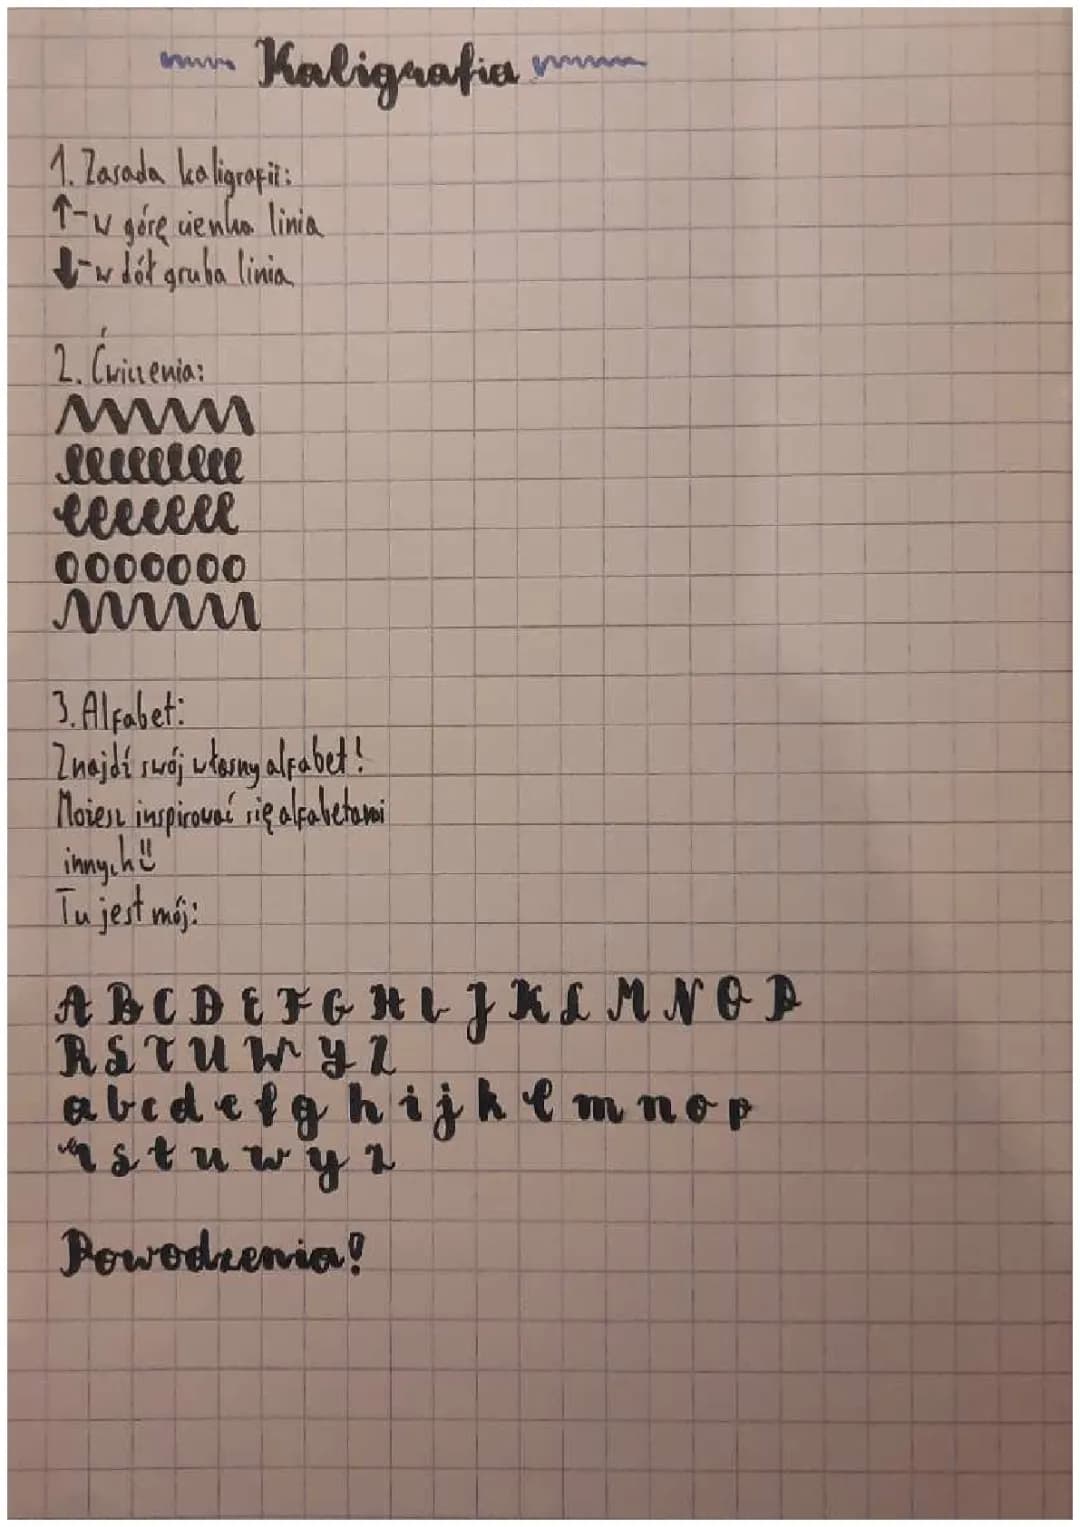 Kaligrafia
1. Zasada kaligrafii:
↑-w górę cienka linia
↓-w dół gruba linia
2. Ćwiczenia:
lllllllll
eeeeeee
0000000
3. Alfabet:
Znajdź swój własny alfabet!
Możesz inspirować się alfabetami
innych
Tu jest mój:
A B C D E F G H I J K L M N O P
R S T U W Y Z
a b c d e f g h i j k l m n o p
r s t u w y z
Powodzenia!